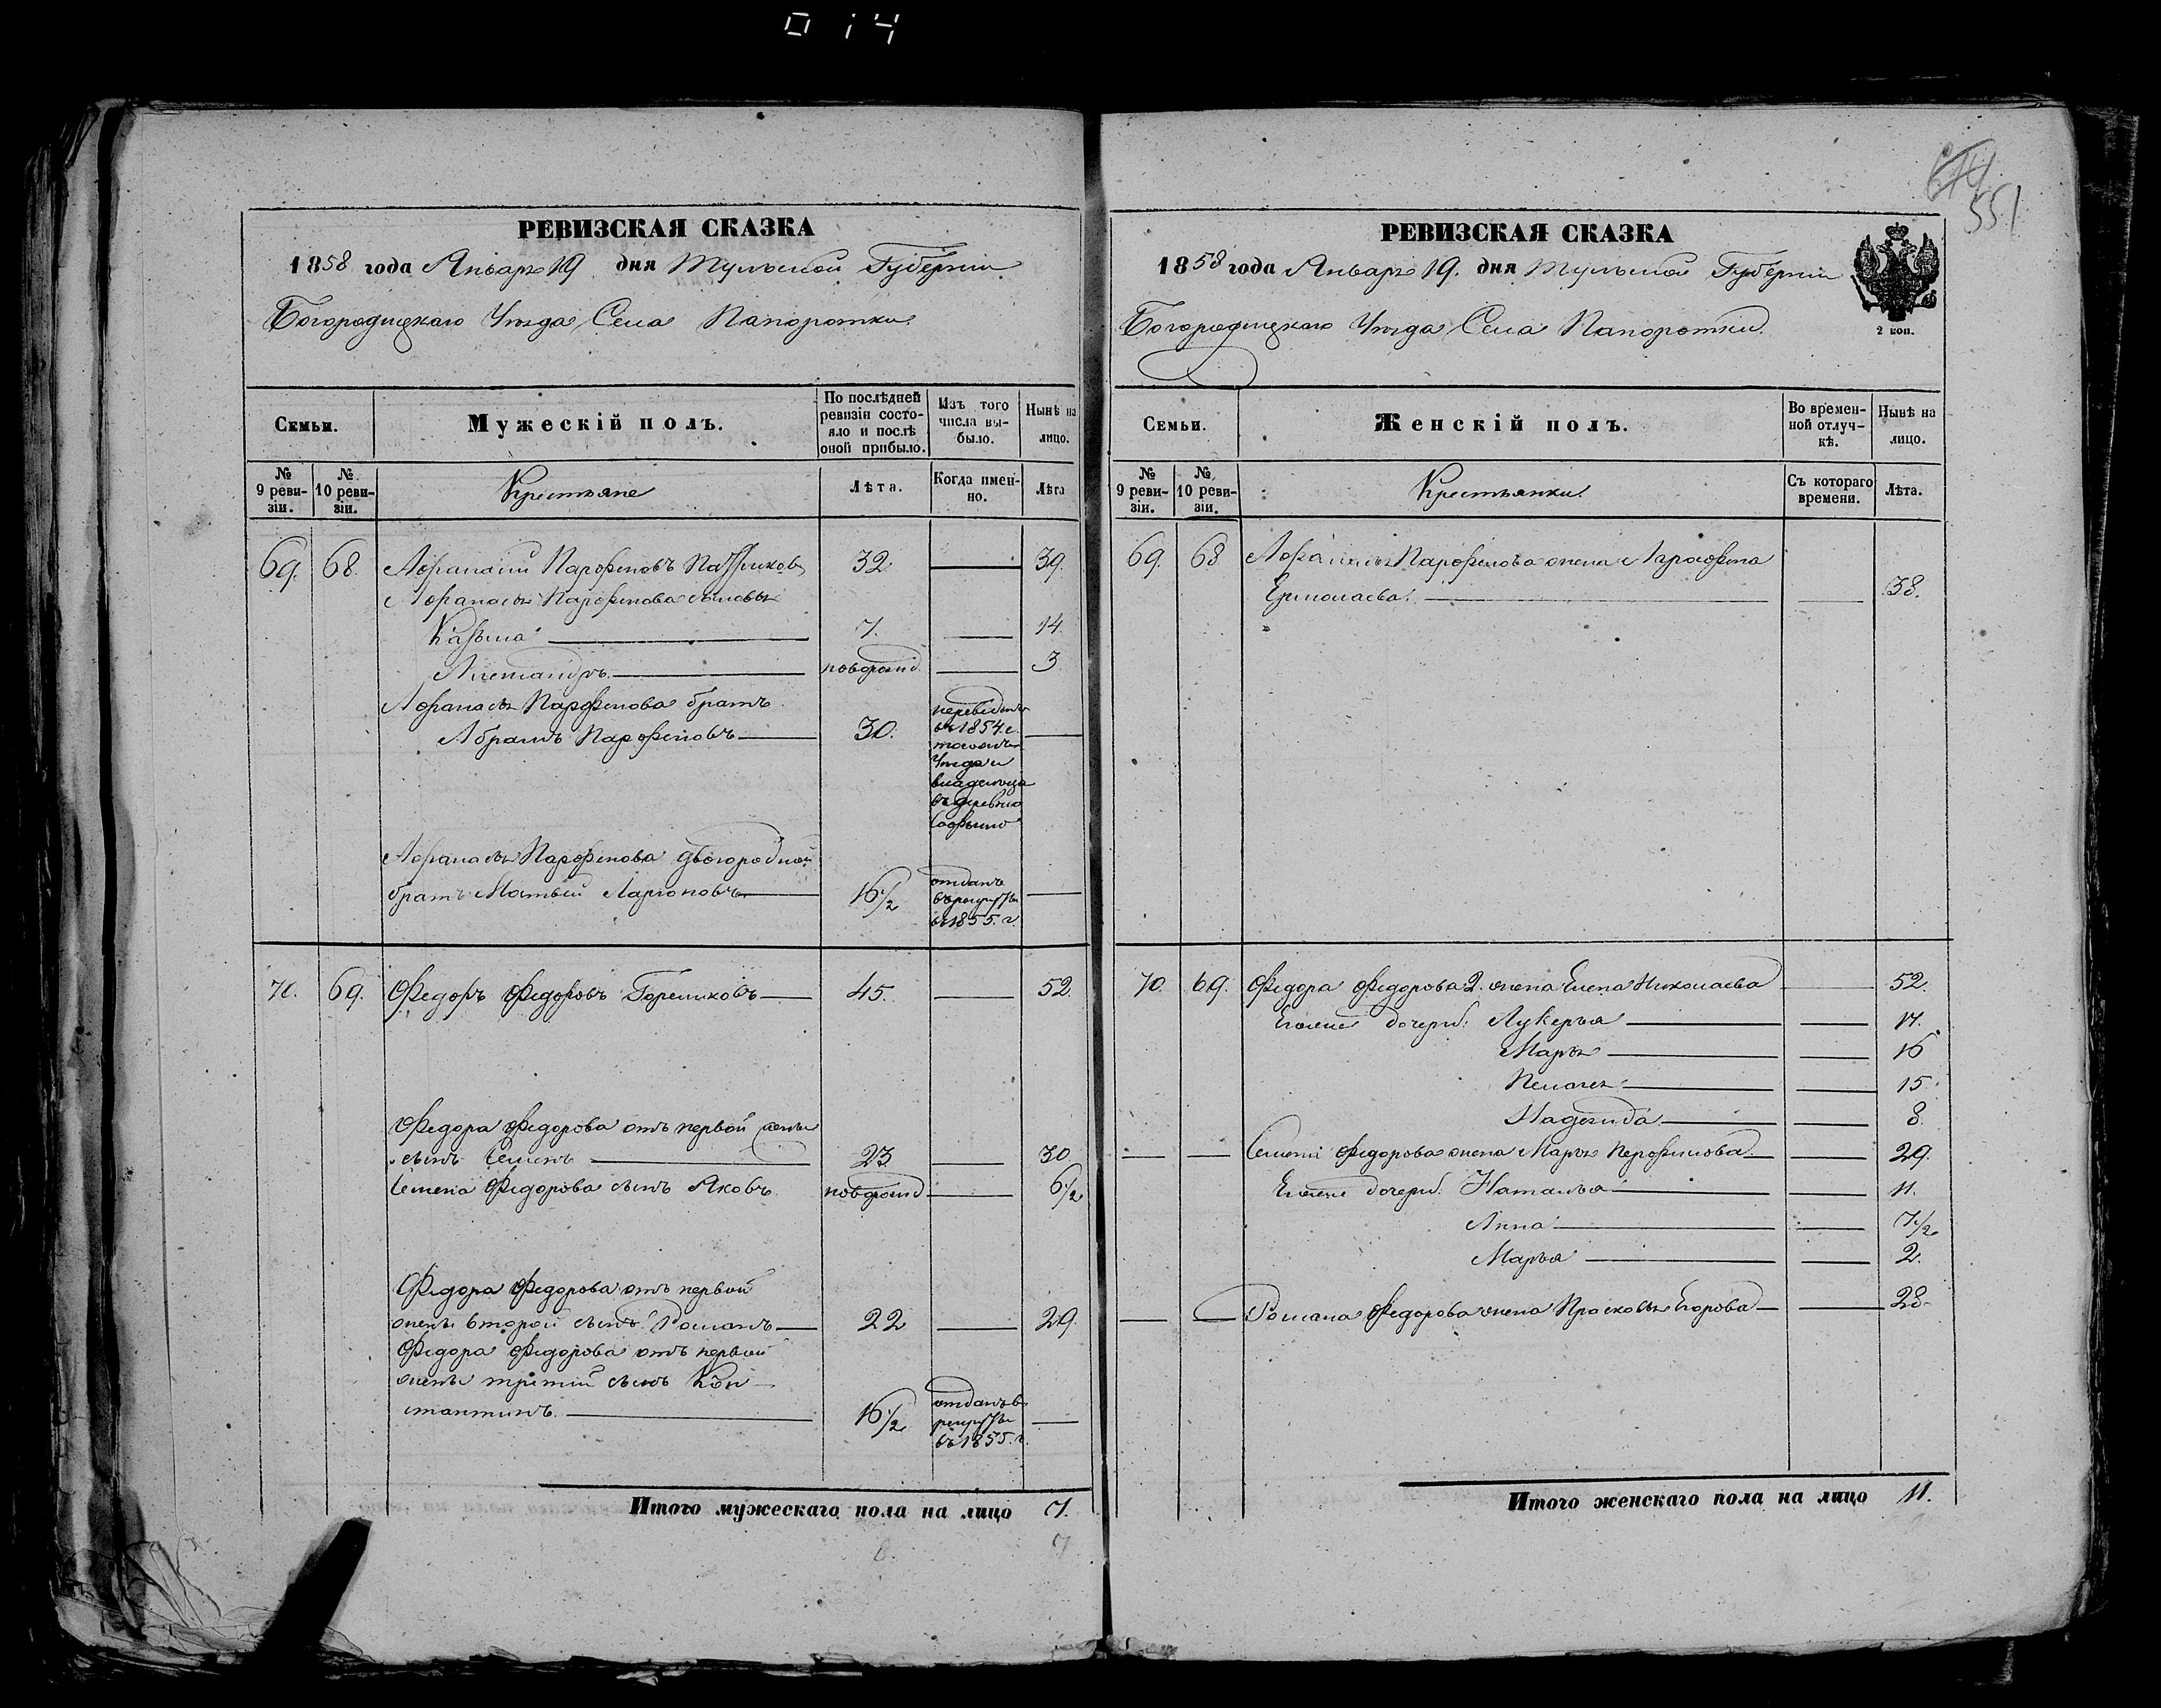 014
551
РЕВИЗСКАЯ СКАЗКА
1858 года Января 19 дня Тульской Губерніи
Богородицкаго Уѣзда Села Папоротки
Семьи.
Мужескій полъ.
По послѣдней ревизіи состояло и послѣ оной прибыло.
Изъ того числа выбыло.
Нынѣ на лицо.
№ 9 ревизіи.
№ 10 ревизіи.
Крестьяне
Лѣта.
Когда именно.
Лѣта
69. 68. Афанасій Парфеновъ 32 — 39.
Афанасья Парфенова сыновья
Казьма — 7. — 14
Александръ — новорожд. — 3.
Афанасья Парфенова братъ
Абрамъ Парфеновъ — 30. —
переведенъ
въ 1854 г.
тогожъ
Уѣзда и
владельца
въ деревню
Софьино
Афанасья Парфенова двоюродной
братъ Матвѣй Ларионовъ — 16 1/2 —
отданъ
въ рекруты
въ 1855. г.
70. 69. Федоръ Федоровъ Гореликовъ — 45. — 52.
Федора Федорова отъ первой жены
сынъ Семенъ — 23 — 30.
Семена Федорова сынъ Яковъ новорожд — 6 1/2
Федора Федорова отъ первой
жены второй сынъ Романъ — 22 — 29.
Федора Федорова отъ первой
жены третій сынъ Кон-
стантинъ. — 16 1/2 —
отданъ въ
рекруты
въ 1855. г.
Итого мужескаго пола на лицо 7.
7
РЕВИЗСКАЯ СКАЗКА
1858 года Января 19. дня Тульской Губерніи
Богородицкаго Уѣзда Села Папоротки
2 коп.
Семьи.
Женскій полъ.
Во временной отлучкѣ.
Нынѣ на лицо.
№ 9 ревизіи.
№ 10 ревизіи.
Крестьянки.
Съ котораго времени.
Лѣта.
69. 68 Афанасья Парфенова жена Аграфена
Ермолаева. — — 38.
70. 69. Федора Федорова 2. жена Елена Николаева — 52.
Ихние дочери: Лукерья — — 17.
Марья — — 16
Пелагея — — 15.
Надежда — — 8.
— — Семена Федорова жена Марья Перфилова — — 29.
Ихние дочери. Наталья — — 11.
Анна — — 7 1/2
Марья — — 2.
— — Романа Федорова жена Прасковья Егорова — — 28.
Итого женскаго пола на лицо 11.